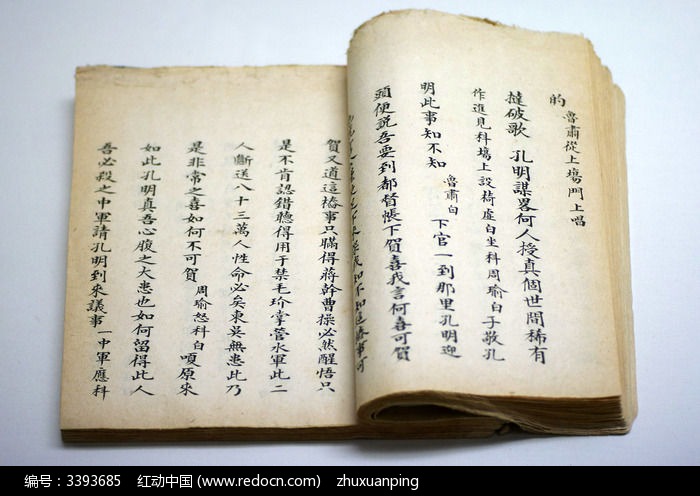 的 魯肅從上塲門上唱
撻破歌 孔明謀畧何人授真個世間稀有
作進見科塲上設椅虛白坐科周瑜白子敬孔
明此事知不知 魯肅白 下官一到那里孔明迎
頭便說吾要到都督帳下賀喜我言何喜可賀
賀又道這樁事只瞞得蔣幹曹操必然醒悟只
是不肯認錯聴得用于禁毛玠掌管水軍此二
人斷送八十三萬人性命必矣東吳無患此乃
是非常之喜如何不可賀 周瑜怒科白 嗄原來
如此孔明真吾心腹之大患也如何留得此人
吾必殺之中軍請孔明到來議事一中軍應科
编号：3393685 红动中国 (www.redocn.com) zhuxuanping